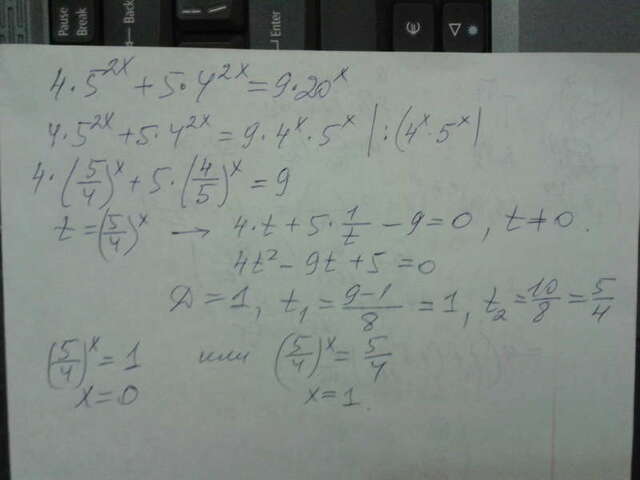 Pause Break
Back
Enter
€
4·5^2x + 5·4^2x = 9·20^x
4·5^2x + 5·4^2x = 9·4^x·5^x |:(4^x·5^x)
4·(5/4)^x + 5·(4/5)^x = 9
t = (5/4)^x → 4·t + 5·1/t - 9 = 0, t ≠ 0.
4t² - 9t + 5 = 0
D = 1, t₁ = (9-1)/8 = 1, t₂ = 10/8 = 5/4
(5/4)^x = 1 или (5/4)^x = 5/4
x = 0 x = 1.